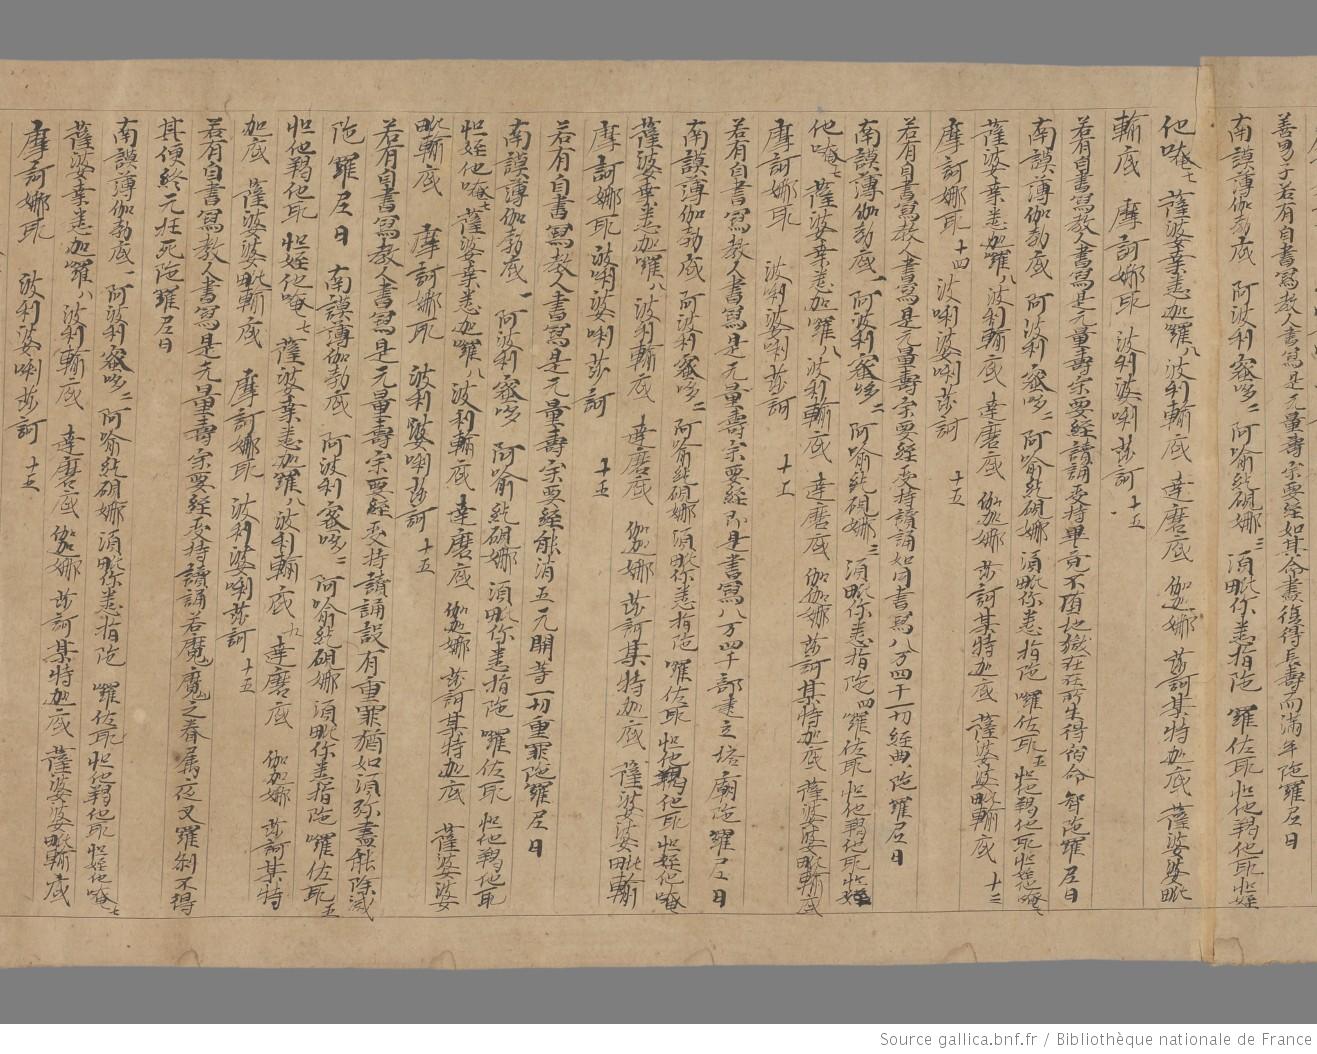 善男子若有自書寫教人書寫是无量壽宗要經如其命盡復得長壽而滿年陁羅尼曰
南謨薄伽勃底 阿波利蜜哆二 阿喻紇硯娜三 須毗你悉指陁 羅佐耶 怛他羯他耶 怛姪
他唵七 薩婆桒悉迦羅八 波利輸底 達磨底 伽迦娜 莎訶某特迦底 薩婆婆毗
輸底 摩訶娜耶 波利婆唎莎訶 十五
若有自書寫教人書寫是无量壽宗要經讀誦受持畢竟不墮地獄在在所生得宿命智陁羅尼曰
南謨薄伽勃底 阿波利蜜哆二 阿喻紇硯娜 須毗你悉指陁 羅佐耶五 怛他羯他耶 怛姪他唵七
薩婆桒悉迦羅八 波利輸底 達磨底 伽迦娜 莎訶某特迦底 薩婆婆毗輸底 十三
摩訶娜耶 十四 波唎婆唎莎訶 十五
若有自書寫教人書寫是无量壽宗要經受持讀誦如同書寫八万四千一切經典陁羅尼曰
南謨薄伽勃底一 阿波利蜜哆二 阿喻紇硯娜三 須毗你悉指陁四 羅佐耶 怛他羯他耶 怛姪
他唵七 薩婆桒悉迦羅八 波利輸底 達磨底 伽迦娜 莎訶某特迦底 薩婆婆毗輸底
摩訶娜耶 波唎婆唎莎訶 十五
若有自書寫教人書寫是无量壽宗要經即是書寫八万四千部建立塔廟陁羅尼曰
南謨薄伽勃底 阿波利蜜哆二 阿喻紇硯娜 須毗你悉指陁 羅佐耶 怛他羯他耶 怛姪他唵
薩婆桒悉迦羅八 波利輸底 達磨底 伽迦娜 莎訶某特迦底 薩婆婆毗輸
摩訶娜耶 波唎婆唎莎訶 十五
若有自書寫教人書寫是无量壽宗要經能消五无間等一切重罪陁羅尼曰
南謨薄伽勃底一 阿波利蜜哆 阿喻紇硯娜 須毗你悉指陁 羅佐耶 怛他羯他耶
怛姪他唵七 薩婆桒悉迦羅八 波利輸底 達磨底 伽迦娜 莎訶某特迦底 薩婆婆
毗輸底 摩訶娜耶 波利婆唎莎訶 十五
若有自書寫教人書寫是无量壽宗要經受持讀誦設有重罪猶如須弥盡能除滅
陁羅尼曰 南謨薄伽勃底 阿波利蜜哆二 阿喻紇硯娜 須毗你悉指陁 羅佐耶五
怛他羯他耶 怛姪他唵七 薩婆桒悉迦羅八 波利輸底九 達磨底 伽迦娜 莎訶某特
迦底 薩婆婆毗輸底 摩訶娜耶 波利婆唎莎訶 十五
若有自書寫教人書寫是无量壽宗要經受持讀誦若魔魔之眷屬夜叉羅刹不得
其便終无枉死陁羅尼曰
南謨薄伽勃底一 阿波利蜜哆二 阿喻紇硯娜 須毗你悉指陁 羅佐耶 怛他羯他耶 怛姪他唵七
薩婆桒悉迦羅八 波利輸底 達磨底 伽迦娜 莎訶某特迦底 薩婆婆毗輸底
摩訶娜耶 波利婆唎莎訶 十五
Source gallica.bnf.fr / Bibliothèque nationale de France